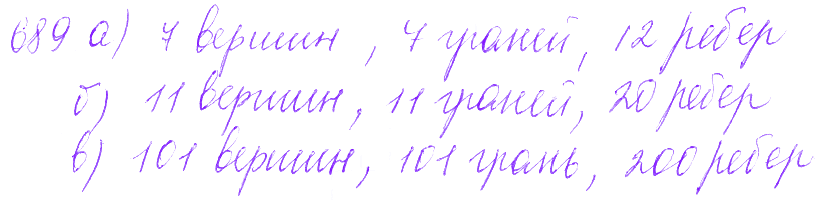 689 а) 7 вершин, 7 граней, 12 ребер
б) 11 вершин, 11 граней, 20 ребер
в) 101 вершин, 101 грань, 200 ребер